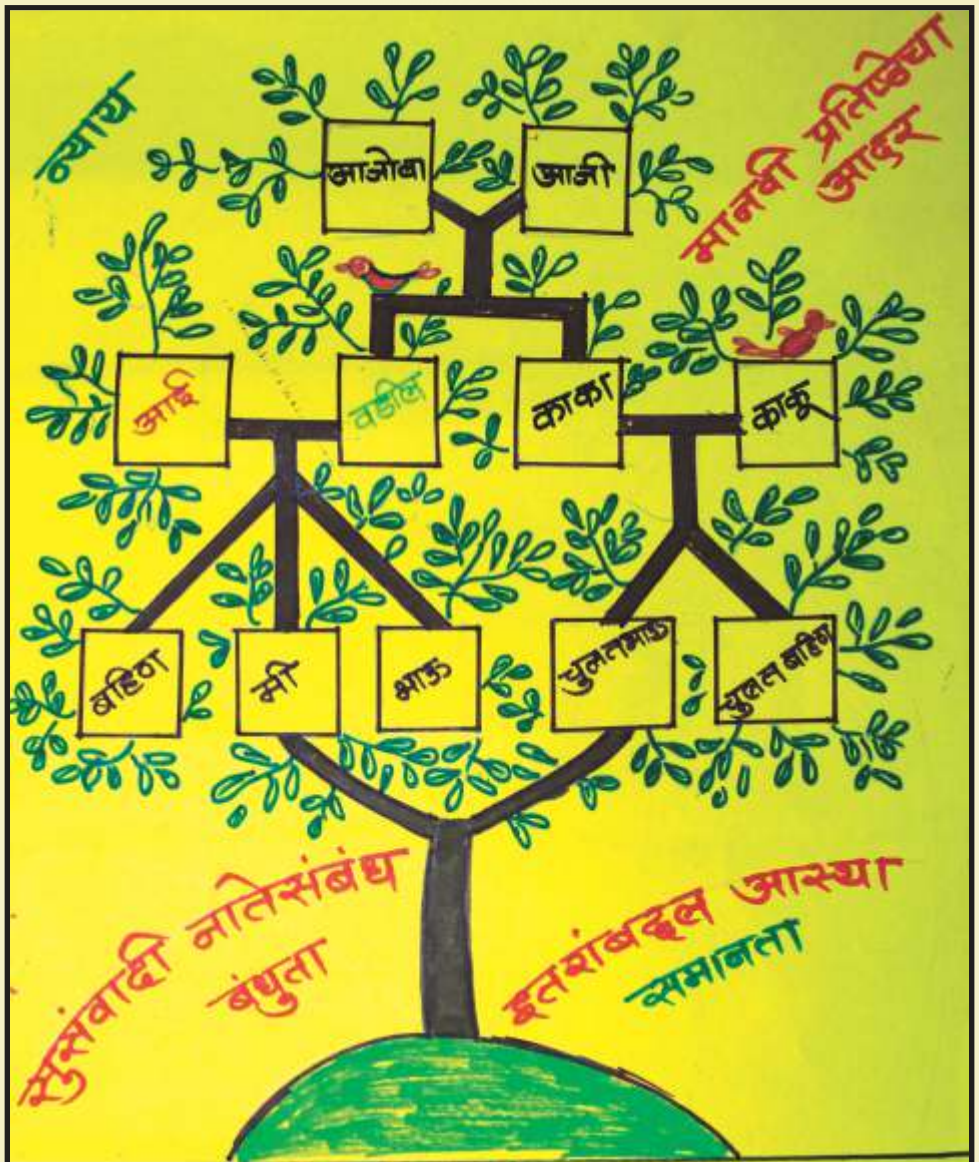 न्याय
मानवी प्रतिष्ठेचा
आदर
आजोबा
आजी
आई
वडील
काका
काकू
बहिण
मी
भाऊ
चुलतभाऊ
चुलत बहिण
सुसंवादी नातेसंबंध
बंधुता
इतरांबद्दल आस्था
समानता